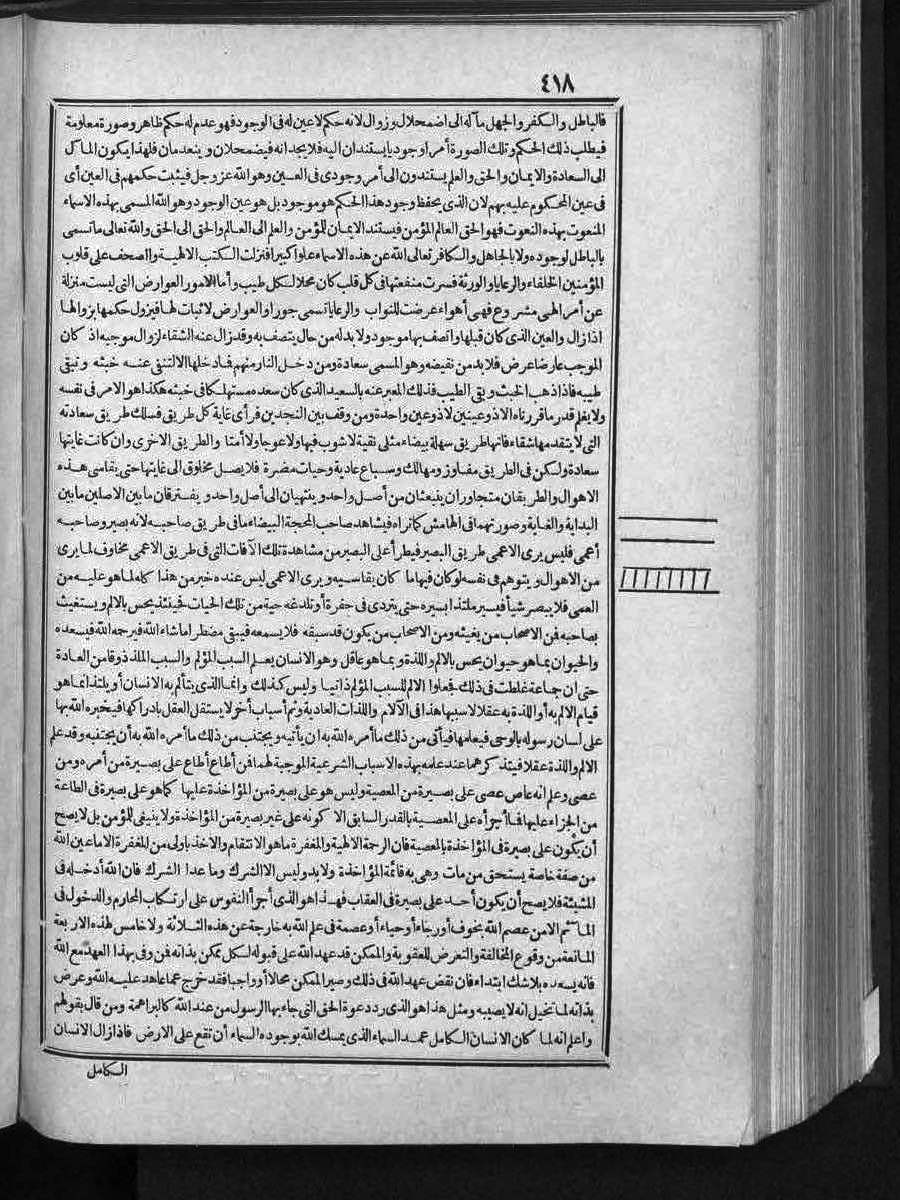 ٤١٨
فالباطل والكفر والجهل مآله الى اضمحلال وزوال لانه حكم لاعين له فى الوجود فهو عدم له حكم ظاهر وصورة معلومة
فيطلب ذلك الحكم وتلك الصورة أمرا وجوديا يستندان اليه فلا يجدانه فيضمحلان وينعدمان فلهذا يكون المآل
الى السعادة والايمان والحق والعلم يستندون الى أمر وجودى فى العين وهو الله عز وجل فيثبت حكمهم فى العين أى
فى عين المحكوم عليه بهم لان الذى يحفظ وجود هذا الحكم هو موجود بل هو عين الوجود وهو الله المسمى بهذه الاسماء
المنعوت بهذه النعوت فهو الحق العالم المؤمن فيستند الايمان للمؤمن والعلم الى العالم والحق الى الحق والله تعالى ما تسمى
بالباطل لوجوده ولا بالجاهل والكافر تعالى الله عن هذه الاسماء علوا كبيرا فنزلت الكتب الالهية والصحف على قلوب
المؤمنين الخلفاء والرعايا والورثة فسرت منفعتها فى كل قلب كان محلا لكل طيب وأما الامور العوارض التى ليست منزلة
عن أمر الهى مشروع فهى أهواء عرضت للنواب والرعايا تسمى جورا والعوارض لا ثبات لها فيزول حكمها بزوالها
اذا زال والعين الذى كان قبلها واتصف بها موجود ولا بد له من حال يتصف به وقد زال عنه الشقاء لزوال موجبه اذ كان
الموجب عارضا عرض فلا بد من نقيضه وهو المسمى سعادة ومن دخل النار منهم فما دخلها الا لتنفى عنه خبثه وتبقى
طيبه فاذا ذهب الخبث وبقى الطيب فذلك المعبر عنه بالسعيد الذى كان سعده مستهلكا فى خبثه هكذا هو الامر فى نفسه
ولا يعلم قدر ما قررناه الا ذو عينين لا ذو عين واحدة ومن وقف بين النجدين فرأى غاية كل طريق فسلك طريق سعادته
التى لا يتقدمها شقاء فانها طريق سهلة بيضاء مثلى نقية لا شوب فيها ولا عوجا ولا أمتا والطريق الاخرى وان كانت غايتها
سعادة ولكن فى الطريق مفاوز ومهالك وسباع عادية وحيات مضرة فلا يصل مخلوق الى غايتها حتى يقاسى هذه
الاهوال والطريقان متجاوران ينبعثان من أصل واحد وينتهيان الى أصل واحد ويفترقان ما بين الاصلين ما بين
البداية والغاية وصورتهما فى الهامش كما تراه فيشاهد صاحب المحجة البيضاء ما فى طريق صاحبه لانه بصير وصاحبه
أعمى فليس يرى الاعمى طريق البصير فيطرأ على البصير من مشاهدة تلك الآفات التى فى طريق الاعمى مخاوف لما يرى
من الاهوال ويتوهم فى نفسه لو كان فيها ما كان يقاسيه ويرى الاعمى ليس عنده خبر من هذا كله لما هو عليه من
العمى فلا يبصر شيأ فيسير ملتذا بسيره حتى يتردى فى حفرة أو تلدغه حية من تلك الحيات فحينئذ يحس بالالم ويستغيث
بصاحبه فمن الاصحاب من يغيثه ومن الاصحاب من يكون قد سبقه فلا يسمعه فيبقى مضطرا ما شاء الله فيرحمه الله فيسعده
والحيوان بما هو حيوان يحس بالالم واللذة وبما هو عاقل وهو الانسان يعلم السبب المؤلم والسبب الملذ ذوقا من العادة
حتى ان جماعة غلطت فى ذلك فجعلوا الالم للسبب المؤلم ذاتيا وليس كذلك وانما الذى يتألم به الانسان أو يلتذ انما هو
قيام الالم به أو اللذة به عقلا لا سببها هذا فى الآلام واللذات العادية وثم أسباب أخر لا يستقل العقل بادراكها فيخبره الله بها
على لسان رسوله بالوحى فيعلمها فيأتى من ذلك ما أمره الله به ان يأتيه ويجتنب من ذلك ما أمره الله به أن يجتنبه وقد علم
الالم واللذة عقلا فيتذكرهما عند علمه بهذه الاسباب الشرعية الموجبة لهما فمن أطاع أطاع على بصيرة من أمره ومن
عصى وعلم انه عاص عصى على بصيرة من المعصية وليس هو على بصيرة من المؤاخذة عليها كما هو على بصيرة فى الطاعة
من الجزاء عليها فما أجرأه على المعصية بالقدر السابق الا كونه على غير بصيرة من المؤاخذة ولا ينبغى للمؤمن بل لا يصح
أن يكون على بصيرة فى المؤاخذة بالمعصية فان الرحمة الالهية والمغفرة ما هو الانتقام والاخذ باولى من المغفرة الا ما عين الله
من صفة خاصة يستحق من مات وهى به قائمة المؤاخذة ولا بد وليس الا الشرك وما عدا الشرك فان الله أدخله فى
المشيئة فلا يصح أن يكون أحد على بصيرة فى العقاب فهذا هو الذى أجرأ النفوس على ارتكاب المحارم والدخول فى
المآثم الا من عصم الله بخوف أو رجاء أو حياء أو عصمة فى علم الله به خارجة عن هذه الثلاثة ولا خامس لهذه الاربعة
المانعة من وقوع المخالفة والتعرض للعقوبة والممكن قد عهد الله على قبوله لكل ممكن بذاته فمن وفى بهذا العهد مع الله
فانه يسعده بلا شك ابتداء فان نقض عهد الله فى ذلك وصير الممكن محالا أو واجبا فقد خرج عما عاهد عليه الله وعرض
بذاته لما تخيل انه لا يصيبه ومثل هذا هو الذى رد دعوة الحق التى جاء بها الرسول من عند الله كالبراهمة ومن قال بقولهم
واعلم انه لما كان الانسان الكامل عمد السماء الذى يمسك الله بوجوده السماء أن تقع على الارض فاذا زال الانسان
الكامل